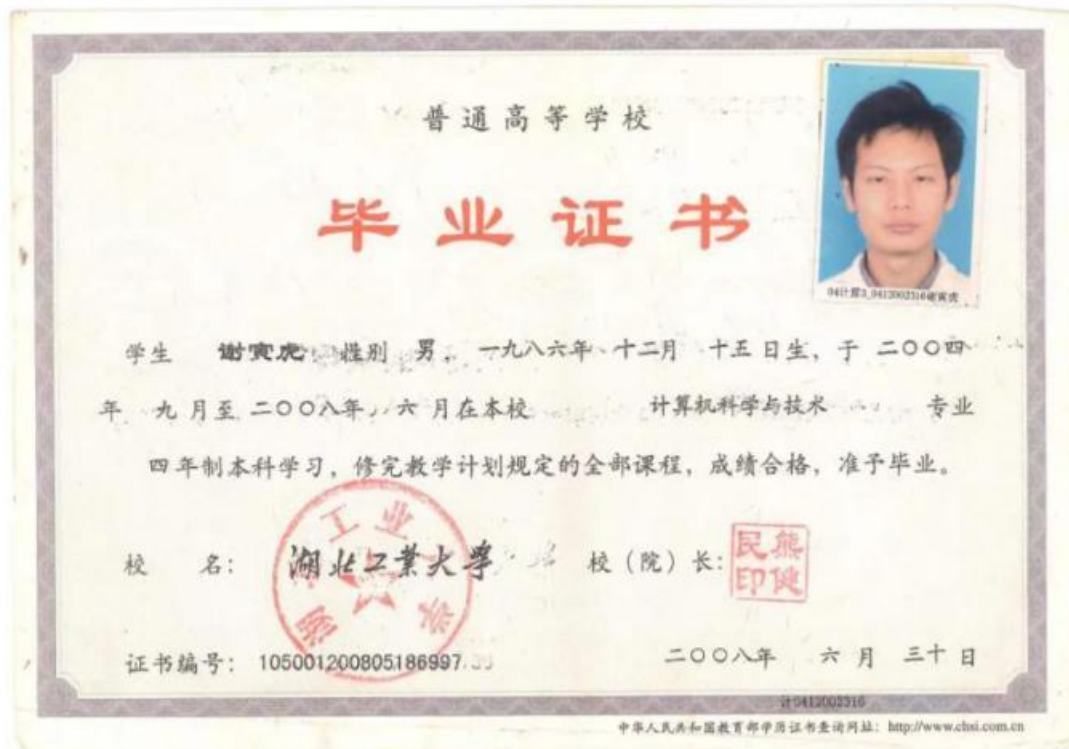 普通高等学校
毕业证书
04计算3_0412002316谢寅虎
学生 谢寅虎 性别 男, 一九八六年 十二月 十五日生, 于 二〇〇四
年 九月至 二〇〇八年 六月在本校 计算机科学与技术 专业
四年制本科学习, 修完教学计划规定的全部课程, 成绩合格, 准予毕业。
校 名: 湖北工業大學 校(院)长: 熊健民印
湖 工业 学
证书编号: 105001200805186997
二〇〇八年 六月 三十日
计0412002316
中华人民共和国教育部学历证书查询网址: http://www.chsi.com.cn